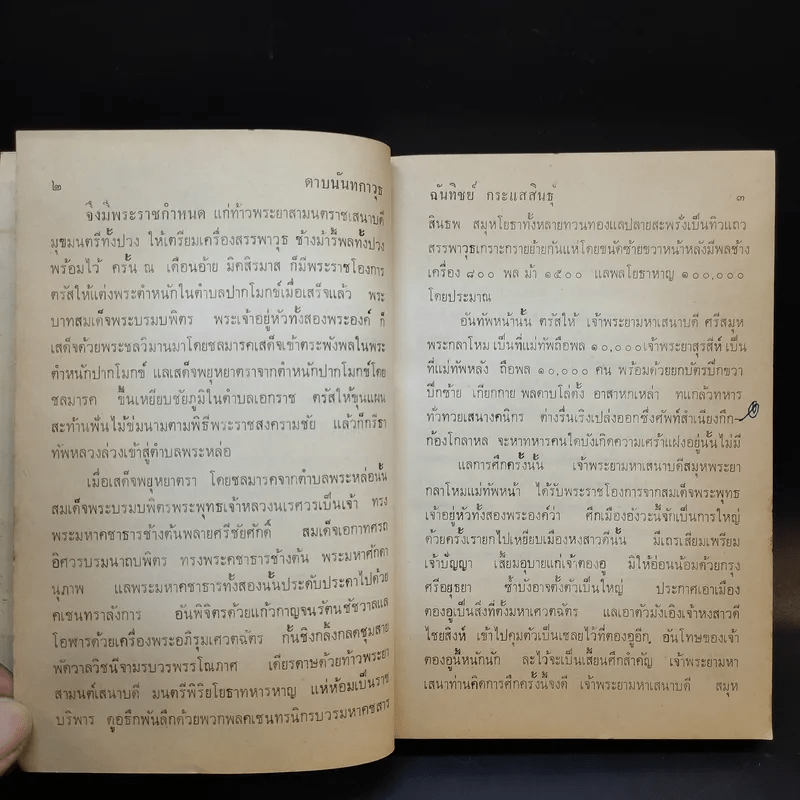 ๒ ดาบนันทกาวุธ
จึงมีพระราชกำหนด แก่ท้าวพระยาสามนตราชเสนาบดี
มุขมนตรีทั้งปวง ให้เตรียมเครื่องสรรพาวุธ ช้างม้ารี้พลทั้งปวง
พร้อมไว้ ครั้น ณ เดือนอ้าย มิคสิรมาส ก็มีพระราชโองการ
ตรัสให้แต่งพระตำหนักในตำบลปากโมกข์เมื่อเสร็จแล้ว พระ
บาทสมเด็จพระบรมบพิตร พระเจ้าอยู่หัวทั้งสองพระองค์ ก็
เสด็จด้วยพระชลวิมานมาโดยชลมารคเสด็จเข้าตระพังพลในพระ
ตำหนักปากโมกข์ และเสด็จพยุหยาตราจากตำหนักปากโมกข์โดย
ชลมารค ขึ้นเหยียบชัยภูมิในตำบลเอกราช ตรัสให้ขุนแผน
สะท้านฟันไม้ข่มนามตามพิธีพระราชสงครามชัย แล้วก็กรีธา
ทัพหลวงล่วงเข้าสู่ตำบลพระหล่อ
เมื่อเสด็จพยุหยาตรา โดยชลมารคจากตำบลพระหล่อนั้น
สมเด็จพระบรมบพิตรพระพุทธเจ้าหลวงนเรศวรเป็นเจ้า ทรง
พระมหาคชาธารช้างต้นพลายศรีชัยศักดิ์ สมเด็จเอกาทศรถ
อิศวรบรมนาถบพิตร ทรงพระคชาธารช้างต้น พระมหาศักดา
นุภาพ แลพระมหาคชาธารทั้งสองนั้นประดับประดาไปด้วย
คเชนทราลังการ อันพิจิตรด้วยแก้วกาญจนรัตนชัชวาลแล
โอฬารด้วยเครื่องพระอภิรุมเศวตฉัตร กั้นชิงกลิ้งกลดชุมสาย
พัดวาลวิชนีจามรบวรพรรโณภาศ เดียรดาษด้วยท้าวพระยา
สามนต์เสนาบดี มนตรีพิริยโยธาทหารหาญ แห่ห้อมเป็นราช
บริพาร ดูอธึกพันลึกด้วยพวกพลคเชนทรนิกรบวรมหาคชสาร
ฉันทิชย์ กระแสสินธุ์ ๓
สินธพ สมุหโยธาทั้งหลายทวนทองแลปลายสะพรั่งเป็นทิวแถว
สรรพาวุธเกราะกรายย้ายกันแห่โดยขนัดซ้ายขวาหน้าหลังมีพลช้าง
เครื่อง ๘๐๐ พล ม้า ๑๕๐๐ แลพลโยธาหาญ ๑๐๐,๐๐๐
โดยประมาณ
อันทัพหน้านั้น ตรัสให้ เจ้าพระยามหาเสนาบดี ศรีสมุห
พระกลาโหม เป็นที่แม่ทัพถือพล ๑๐,๐๐๐เจ้าพระยาสุรสีห์ เป็น
ที่แม่ทัพหลัง ถือพล ๑๐,๐๐๐ คน พร้อมด้วยยกบัตรปีกขวา
ปีกซ้าย เกียกกาย พลดาบโล่ดั้ง อาสาหกเหล่า ทแกล้วทหาร
ทั่วทวยเสนางคนิกร ต่างรื่นเริงเปล่งออกซึ่งศัพท์สำเนียงกึก-
ก้องโกลาหล จะหาทหารคนใดบังเกิดความเศร้าแฝงอยู่นั้นไม่มี
แลการศึกครั้งนั้น เจ้าพระยามหาเสนาบดีสมุหพระยา
กลาโหมแม่ทัพหน้า ได้รับพระราชโองการจากสมเด็จพระพุทธ
เจ้าอยู่หัวทั้งสองพระองค์ว่า ศึกเมืองอังวะนี้จักเป็นการใหญ่
ด้วยครั้งเรายกไปเหยียบเมืองหงสาวดีนั้น มีเถรเสียมเพรียม
เจ้าปัญญา เสี้ยมอุบายแก่เจ้าตองอู มิให้อ่อนน้อมด้วยกรุง
ศรีอยุธยา ซ้ำบังอาจตั้งตัวเป็นใหญ่ ประกาศเอาเมือง
ตองอูเป็นสิ่งที่ตั้งมหาเศวตฉัตร แลเอาตัวมังเอิงเจ้าหงสาวดี
ไชยสิงห์ เข้าไปคุมตัวเป็นเชลยไว้ที่ตองอูอีก อันโทษของเจ้า
ตองอูนี้หนักนัก ละไว้จะเป็นเสี้ยนศึกสำคัญ เจ้าพระยามหา
เสนาท่านคิดการศึกครั้งนี้จงดี เจ้าพระยามหาเสนาบดี สมุห